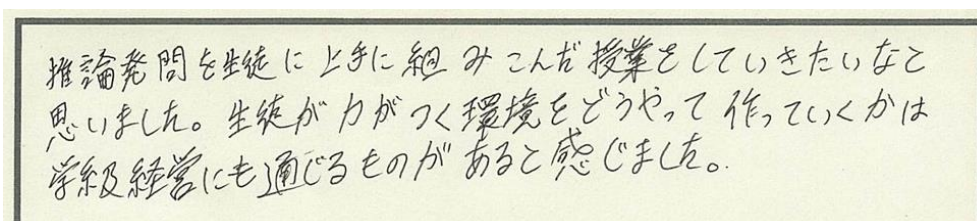 推論発問を生徒に上手に組みこんだ授業をしていきたいなと
思いました。生徒が力がつく環境をどうやって作っていくかは
学級経営にも通じるものがあると感じました。